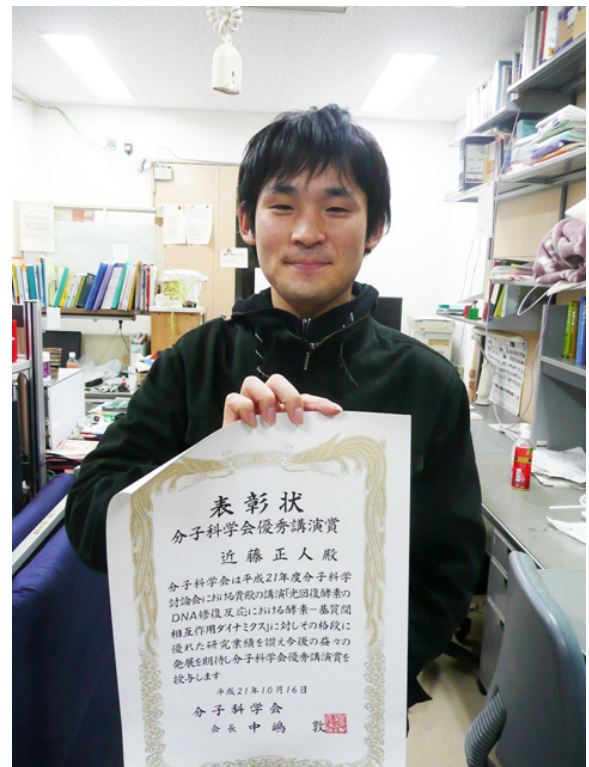 表彰状
分子科学会優秀講演賞
近藤正人殿
分子科学会は平成21年度分子科学
討論会における貴殿の講演「光回復酵素の
DNA修復反応における酵素-基質間
相互作用ダイナミクス」に対しその格段に
優れた研究業績を讃え今後の益々の
発展を期待し分子科学会優秀講演賞を
授与します
平成21年10月16日
分子科学会
会長 中嶋 敦